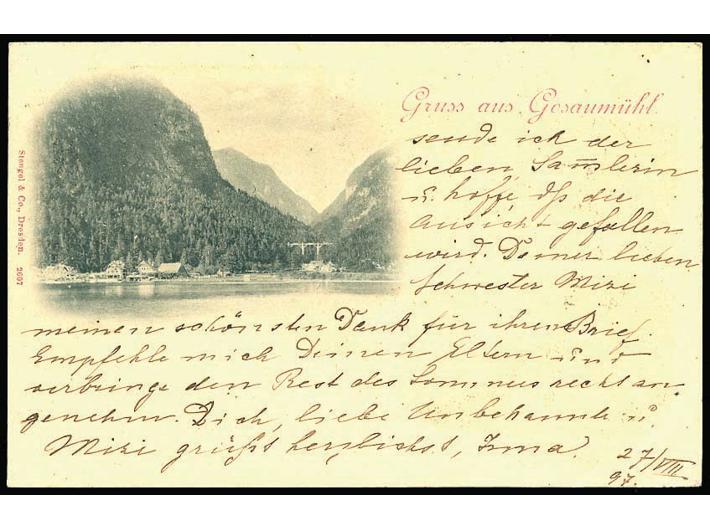 Gruss aus Gosaumühl.
sende ich der
lieben Sam̅lerin
u. hoffe, dß die
Ansicht gefallen
wird. Deiner lieben
Schwester Mizi
meinen schönsten Dank für ihren Brief.
Empfehle mich Deinen Eltern und
verbringe den Rest des Sommers recht an-
genehm. Dich, liebe Unbekannte u.
Mizi grüßt herzlichst, Irma.
27/VIII
97.
Stengel & Co., Dresden. 2697